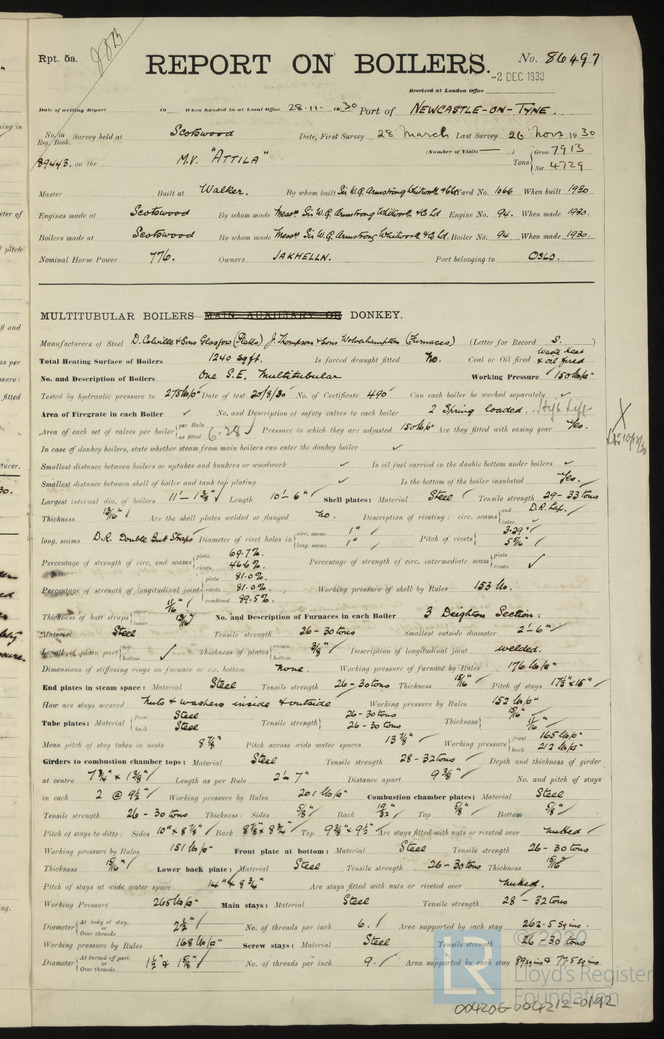 Rpt. 5a.
REPORT ON BOILERS.
No. 86497
-2 DEC 1930
Received at London Office
Date of writing Report 19 When handed in at Local Office 28.11. 1930 Port of NEWCASTLE-ON-TYNE.
No. in Reg. Book. Survey held at Scotswood Date, First Survey 28 March Last Survey 26 Nov. 1930
(Number of Visits —) Gross 7913
89443. on the M.V. "ATTILA" Tons Net 4729
Master Built at Walker. By whom built Sir W.G. Armstrong Whitworth & Co Ld Yard No. 1066 When built 1930
Engines made at Scotswood By whom made Messrs Sir W.G. Armstrong Whitworth & Co Ld Engine No. 94. When made 1930.
Boilers made at Scotswood By whom made Messrs Sir W.G. Armstrong Whitworth & Co Ld. Boiler No. 94 When made 1930.
Nominal Horse Power 776. Owners JAKHELLN. Port belonging to OSLO.
MULTITUBULAR BOILERS MAIN, AUXILIARY, OR DONKEY.
Manufacturers of Steel D. Colville & Sons Glasgow (Plates) J. Thompson & Sons Wolverhampton (Furnaces) (Letter for Record S.)
Total Heating Surface of Boilers 1240 sq ft. Is forced draught fitted No. Coal or Oil fired Waste heat & oil fired
No. and Description of Boilers One S.E. Multitubular Working Pressure 150 lb/□"
Tested by hydraulic pressure to 275 lb/□" Date of test 20/8/30 No. of Certificate 490 Can each boiler be worked separately ✓
Area of Firegrate in each Boiler ✓ No. and Description of safety valves to each boiler 2 Spring loaded. High Lift
Area of each set of valves per boiler per Rule as fitted 6.28 Pressure to which they are adjusted 150 lb/□" Are they fitted with easing gear Yes.
In case of donkey boilers, state whether steam from main boilers can enter the donkey boiler ✓
Smallest distance between boilers or uptakes and bunkers or woodwork ✓ Is oil fuel carried in the double bottom under boilers ✓
Smallest distance between shell of boiler and tank top plating ✓ Is the bottom of the boiler insulated Yes.
Largest internal dia. of boilers Length 10'-6" Shell plates: Material Steel Tensile strength 29-33 tons
Thickness 13/16" Are the shell plates welded or flanged No. Description of riveting: circ. seams end D.R. Lap. inter. ✓
long. seams D.R. Double Butt Straps Diameter of rivet holes in circ. seams 1" long. seams 1" Pitch of rivets 3.29"
Percentage of strength of circ. end seams plate 69.7% rivets 46.6% Percentage of strength of circ. intermediate seam plate rivets ✓
Percentage of strength of longitudinal joint plate 81.0% rivets 81.0% combined 89.5% Working pressure of shell by Rules 153 lb.
Thickness of butt straps outer 11/16" inner 13/16" No. and Description of Furnaces in each Boiler 3 Deighton Section.
Material Steel Tensile strength 26-30 tons Smallest outside diameter 2'-6"
Length of plain part top bottom ✓ Thickness of plates crown bottom 3/8" Description of longitudinal joint welded.
Dimensions of stiffening rings on furnace or c.c. bottom none. Working pressure of furnace by Rules 176 lb/□"
End plates in steam space: Material Steel Tensile strength 26-30 tons Thickness 15/16" Pitch of stays 17½" x 15"
How are stays secured Nuts & washers inside & outside Working pressure by Rules 152 lb/□"
Tube plates: Material front Steel back Steel Tensile strength 26-30 tons 26-30 tons Thickness 15/16" 11/16"
Mean pitch of stay tubes in nests 8⅞" Pitch across wide water spaces 13⅞" Working pressure front 165 lb/□" back 212 lb/□"
Girders to combustion chamber tops: Material Steel Tensile strength 28-32 tons Depth and thickness of girder
at centre 7¾" x 1⅜" Length as per Rule 2'-7" Distance apart 9⅜" No. and pitch of stays
in each 2 @ 9½" Working pressure by Rules 201 lb/□" Combustion chamber plates: Material Steel
Tensile strength 26-30 tons Thickness: Sides 5/8" Back 19/32" Top 5/8" Bottom 5/8"
Pitch of stays to ditto: Sides 10" x 8⅞" Back 8⅞" x 8¾" Top 9⅜" x 9½" Are stays fitted with nuts or riveted over nutted
Working pressure by Rules 151 lb/□" Front plate at bottom: Material Steel Tensile strength 26-30 tons
Thickness 15/16" Lower back plate: Material Steel Tensile strength 26-30 tons Thickness 15/16"
Pitch of stays at wide water space 14" x 8¾" Are stays fitted with nuts or riveted over nutted.
Working Pressure 265 lb/□" Main stays: Material Steel Tensile strength 28-32 tons
Diameter At body of stay, or Over threads 2½" No. of threads per inch 6. Area supported by each stay 262.5 sq ins.
Working pressure by Rules 168 lb/□" Screw stays: Material Steel Tensile strength 26-30 tons
Diameter At turned off part, or Over threads 1½" & 1⅝" No. of threads per inch 9. Area supported by each stay 89 sq ins & 77.5 sq ins.
© 2020
LR
Lloyd's Register
Foundation
004206-004212-0192